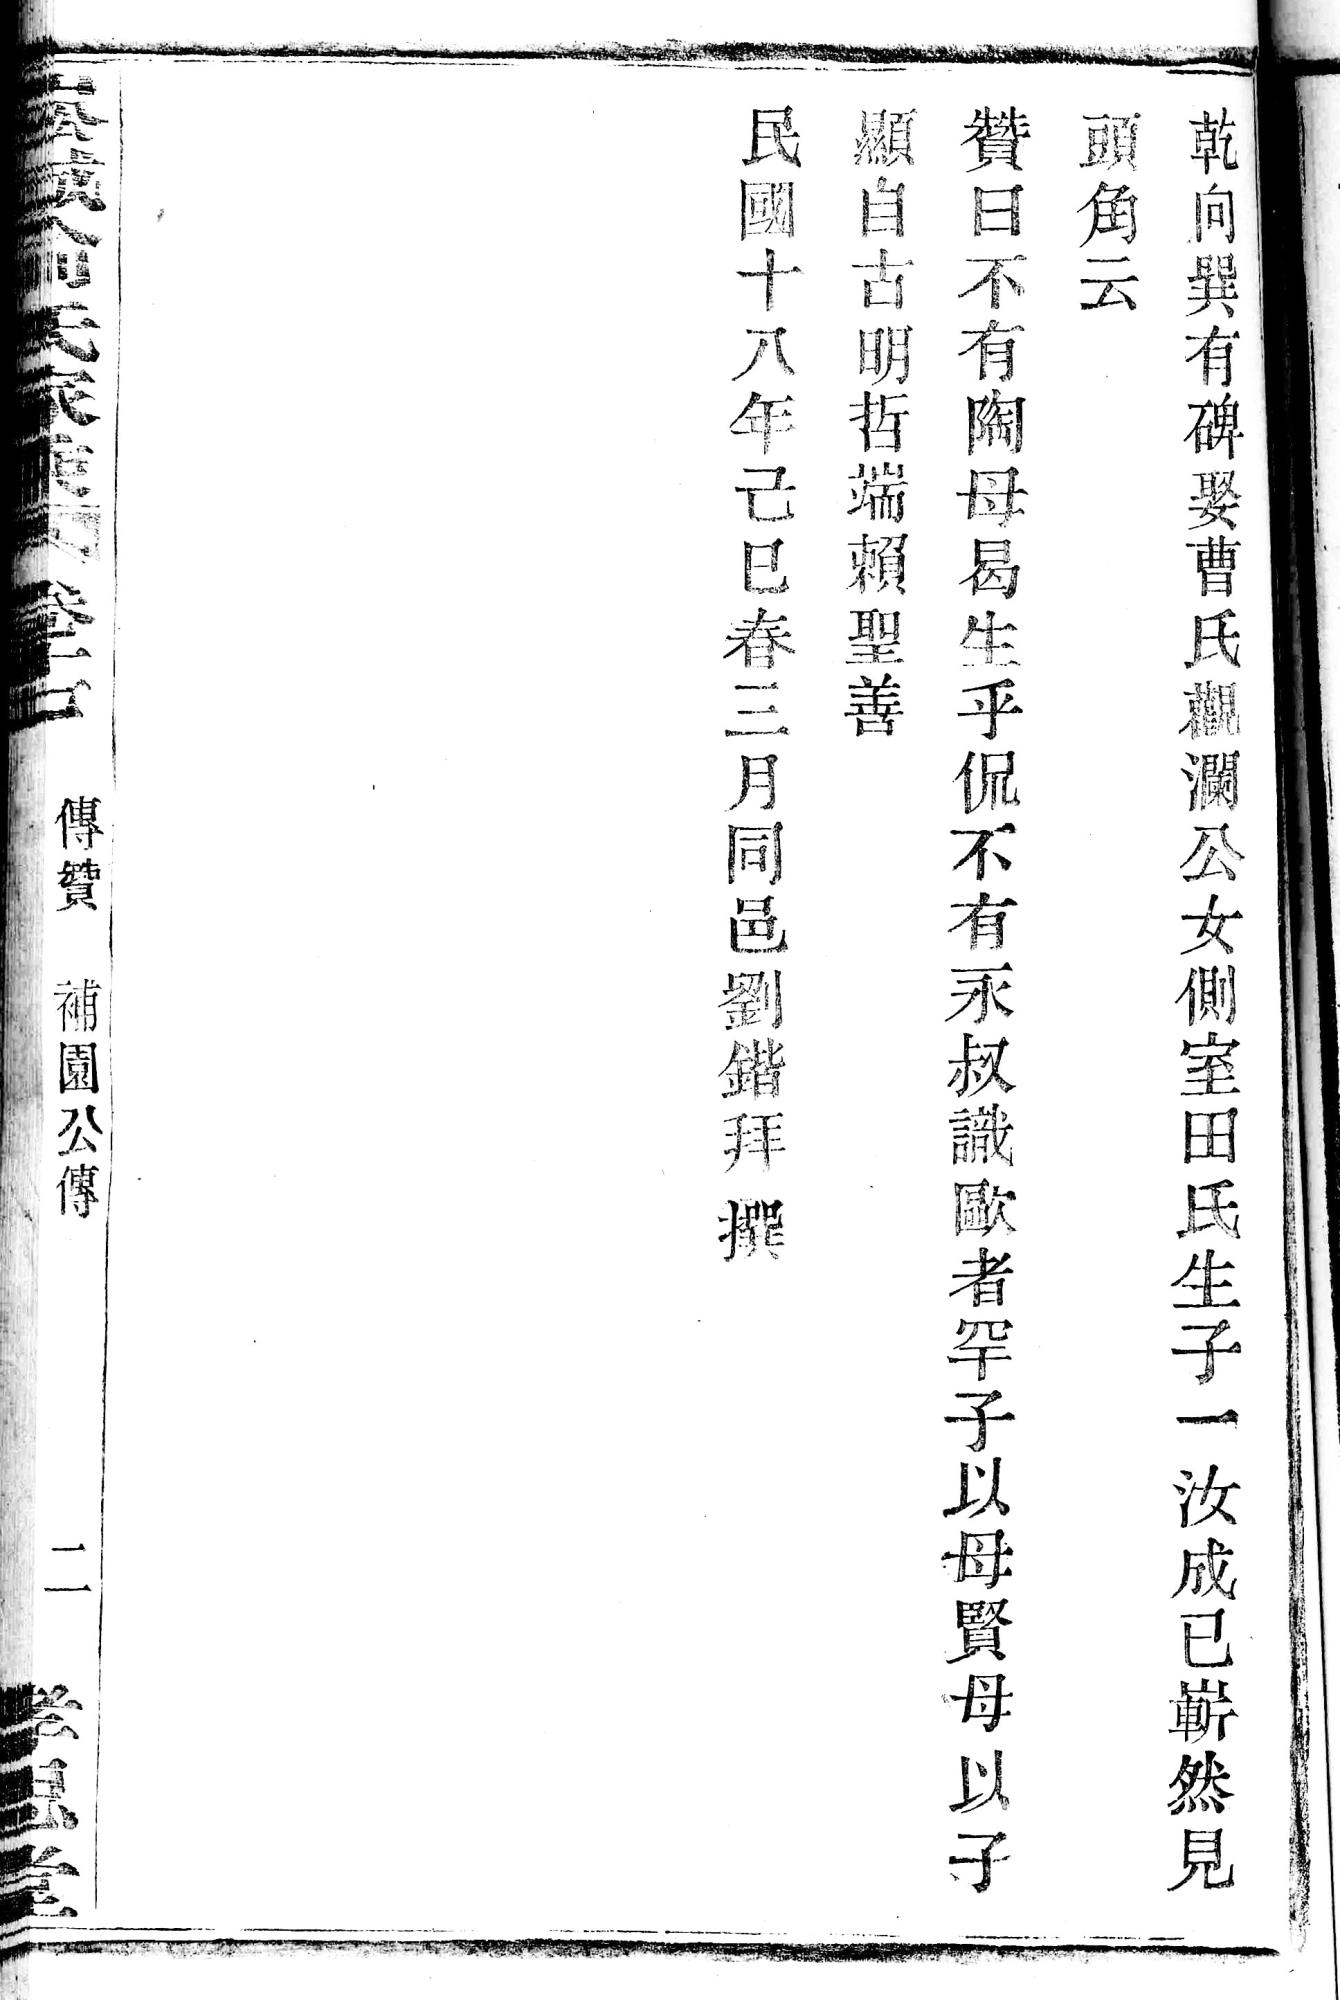 乾向巽有碑娶曹氏觀瀾公女側室田氏生子一汝成已嶄然見
頭角云
贊曰不有陶母曷生乎侃不有永叔識歐者罕子以母賢母以子
顯自古明哲端賴聖善
民國十八年己巳春三月同邑劉鍇拜撰
氏家乘 卷首
傳贊 補園公傳
二
孝思堂